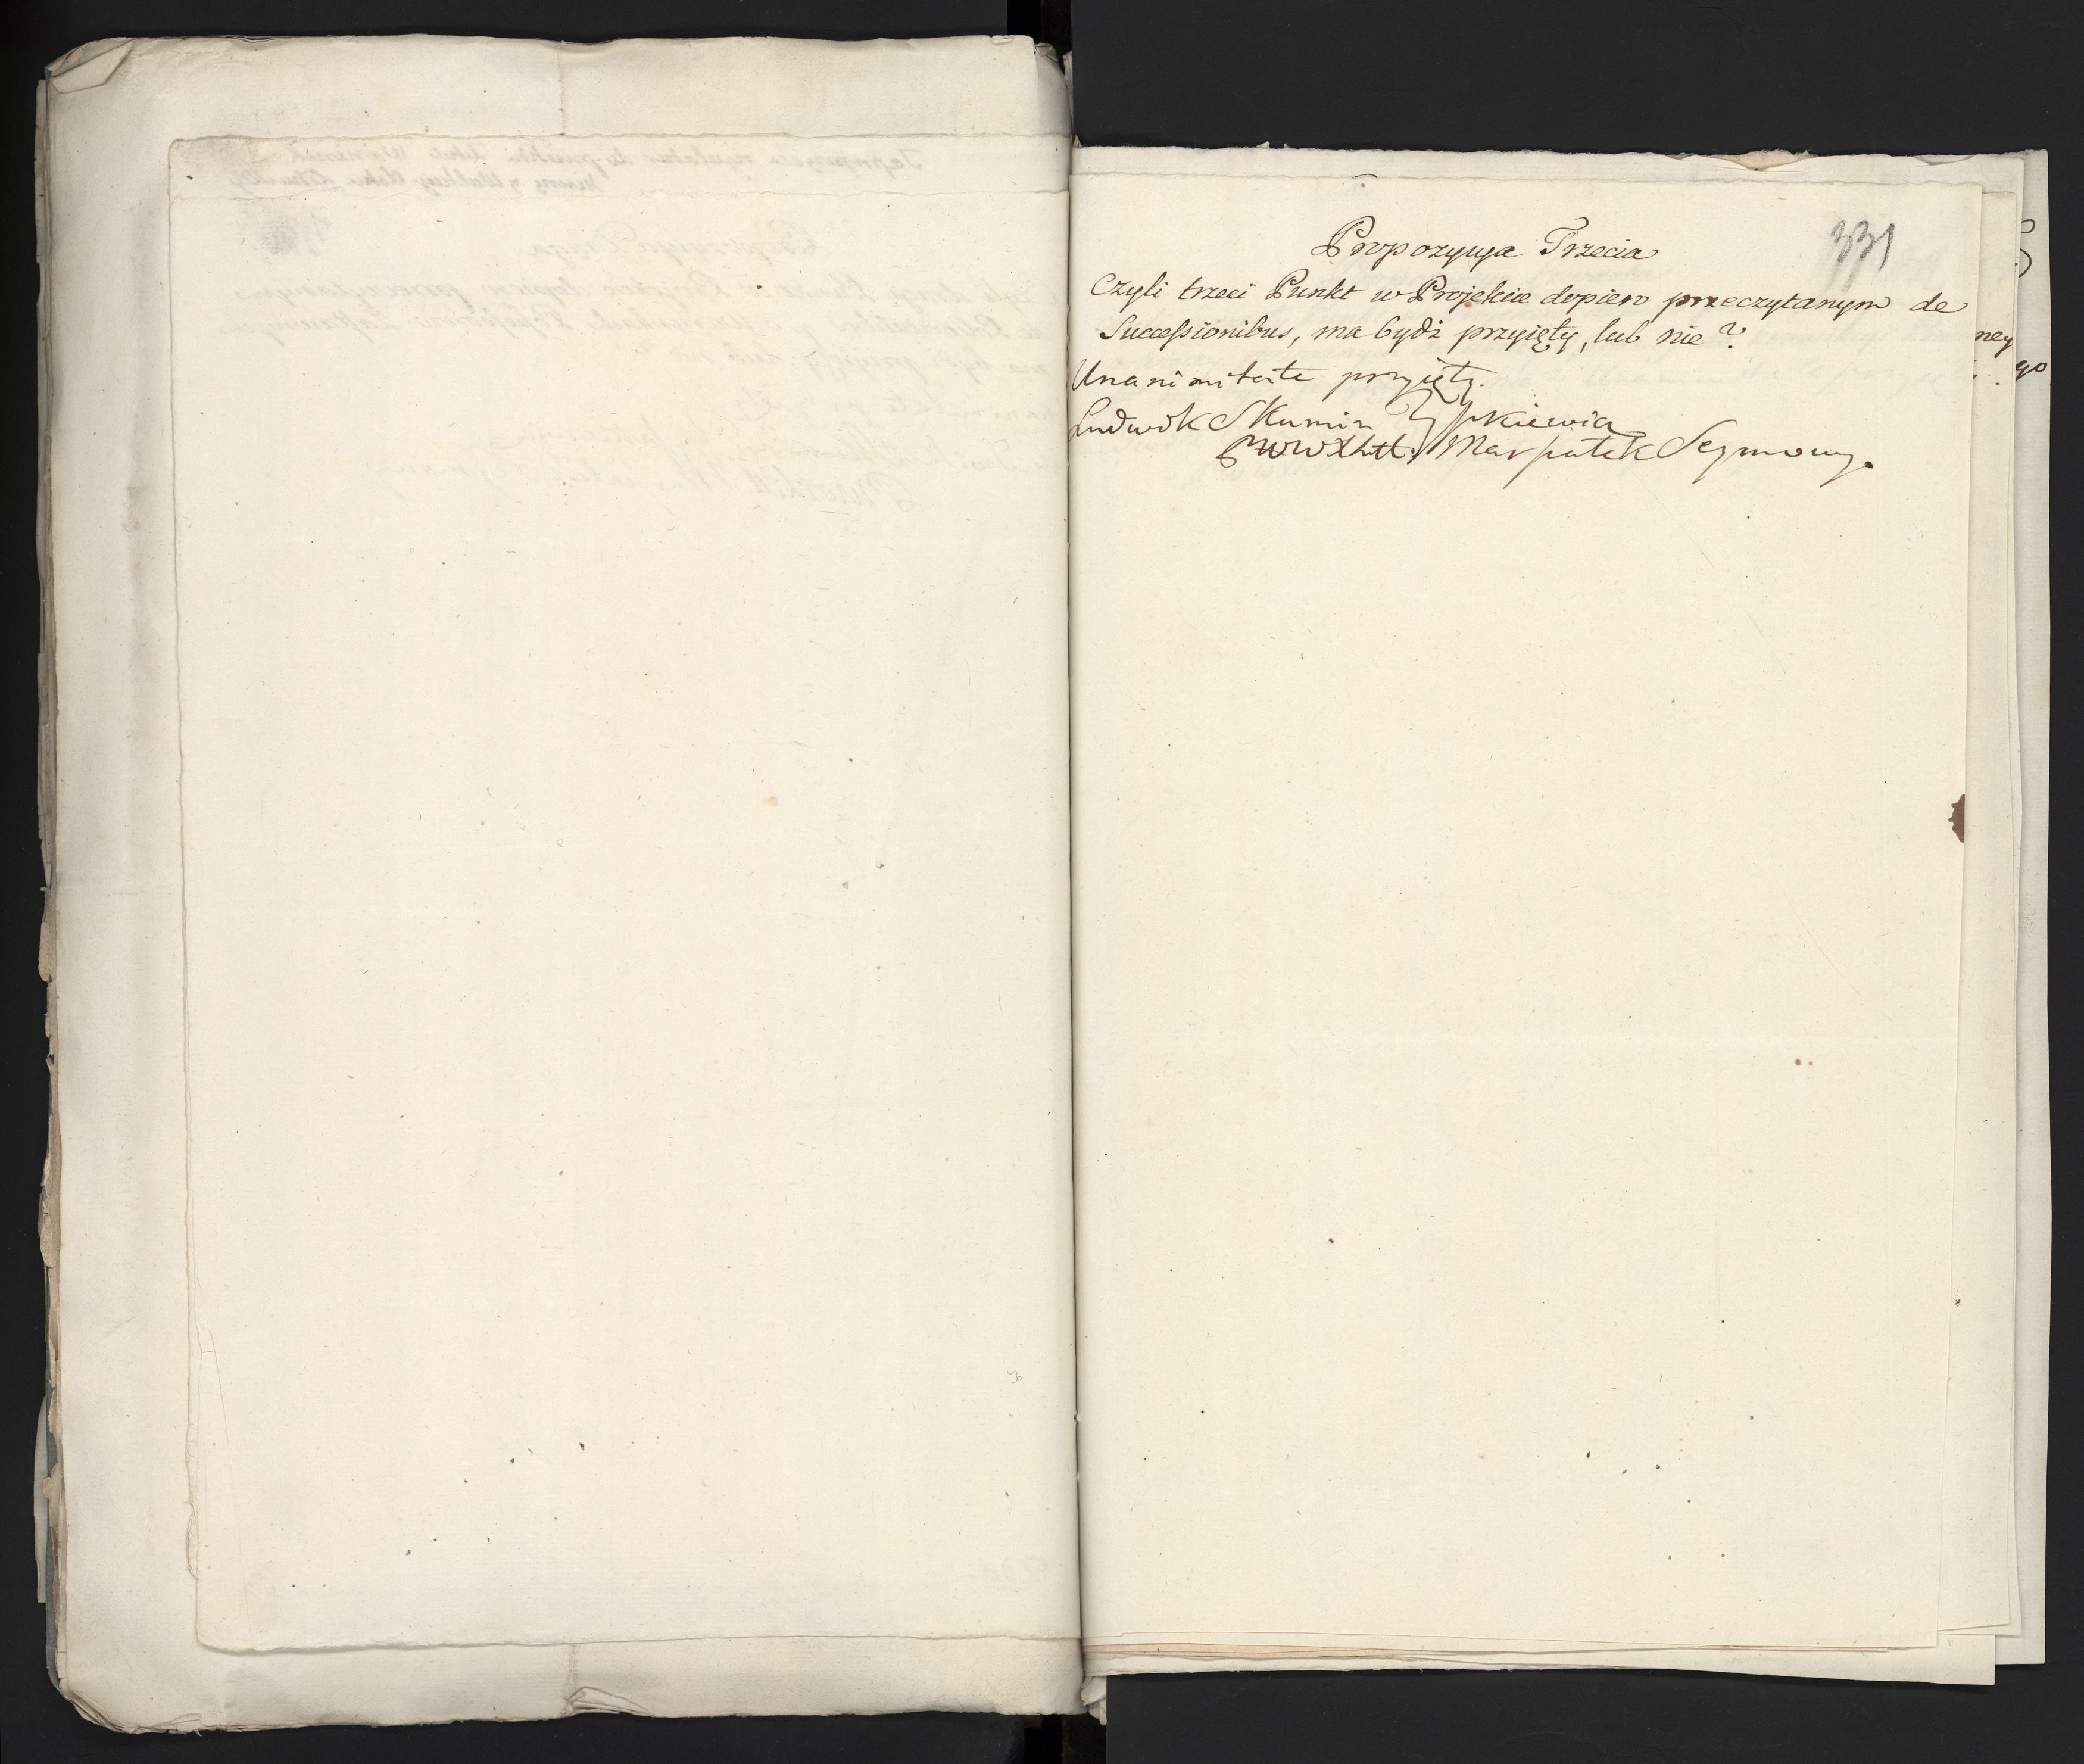 331
Propozycya Trzecia
Czyli trzeci Punkt w Projekcie dopiero przeczytanym de
Successionibus, ma bydź przyięty, lub nie?
Unanimitate przyięty.
Ludwik Skumin Tyszkiewicz
PWWXLitt. Marszałek Seymowy.
ney
go